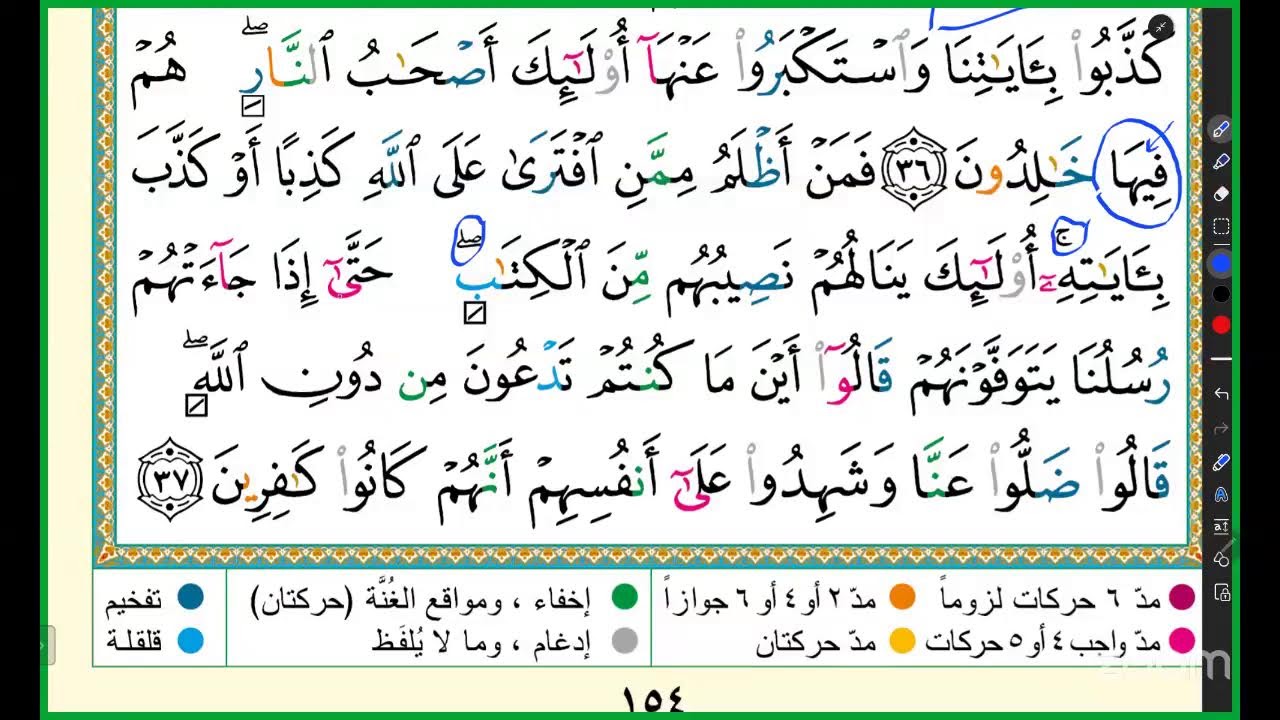 كَذَّبُوا۟ بِـَٔايَـٰتِنَا وَٱسْتَكْبَرُوا۟ عَنْهَآ أُو۟لَـٰٓئِكَ أَصْحَـٰبُ ٱلنَّارِ ۖ هُمْ
فِيهَا خَـٰلِدُونَ ٣٦ فَمَنْ أَظْلَمُ مِمَّنِ ٱفْتَرَىٰ عَلَى ٱللَّهِ كَذِبًا أَوْ كَذَّبَ
بِـَٔايَـٰتِهِۦٓ ۚ أُو۟لَـٰٓئِكَ يَنَالُهُمْ نَصِيبُهُم مِّنَ ٱلْكِتَـٰبِ ۖ حَتَّىٰٓ إِذَا جَآءَتْهُمْ
رُسُلُنَا يَتَوَفَّوْنَهُمْ قَالُوٓا۟ أَيْنَ مَا كُنتُمْ تَدْعُونَ مِن دُونِ ٱللَّهِ ۖ
قَالُوا۟ ضَلُّوا۟ عَنَّا وَشَهِدُوا۟ عَلَىٰٓ أَنفُسِهِمْ أَنَّهُمْ كَانُوا۟ كَـٰفِرِينَ ٣٧
مدّ ٦ حركات لزوماً مدّ ٢ أو ٤ أو ٦ جوازاً إخفاء ، ومواقع الغُنَّة (حركتان) تفخيم
مدّ واجب ٤ أو ٥ حركات مدّ حركتان إدغام ، وما لا يُلفَظ قلقلة
zoom
١٥٤